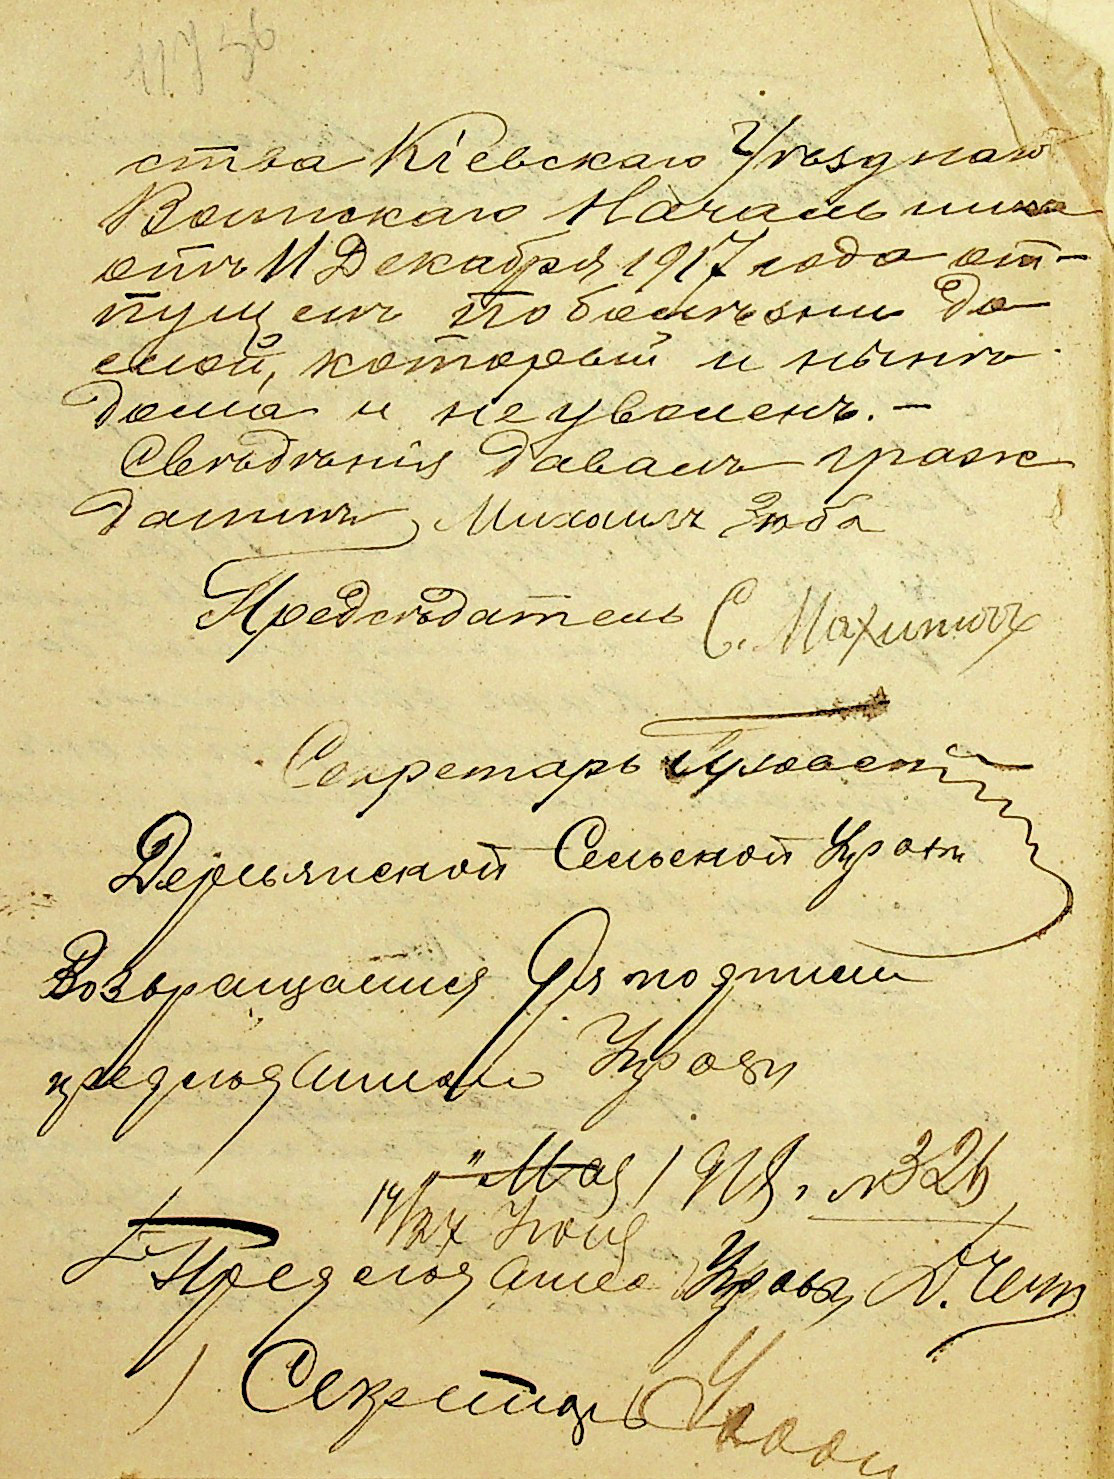 ства Кіевскаго Уѣзднаго
Воинскаго Начальника
отъ 11 Декабря 1917 года от-
пущенъ по болѣзни до
мой, который и нынѣ
дома и не уволенъ. —
Свѣдѣнія давалъ граж
данинъ Михаилъ Зюба
Предсѣдатель С.
Секретарь
Сельской Управѣ
Возвращается для подписи
предсѣдателем Управы
" " Мая 1918 г. № 326
14/27 Июня
Председатель Управы Д.
Секретарь